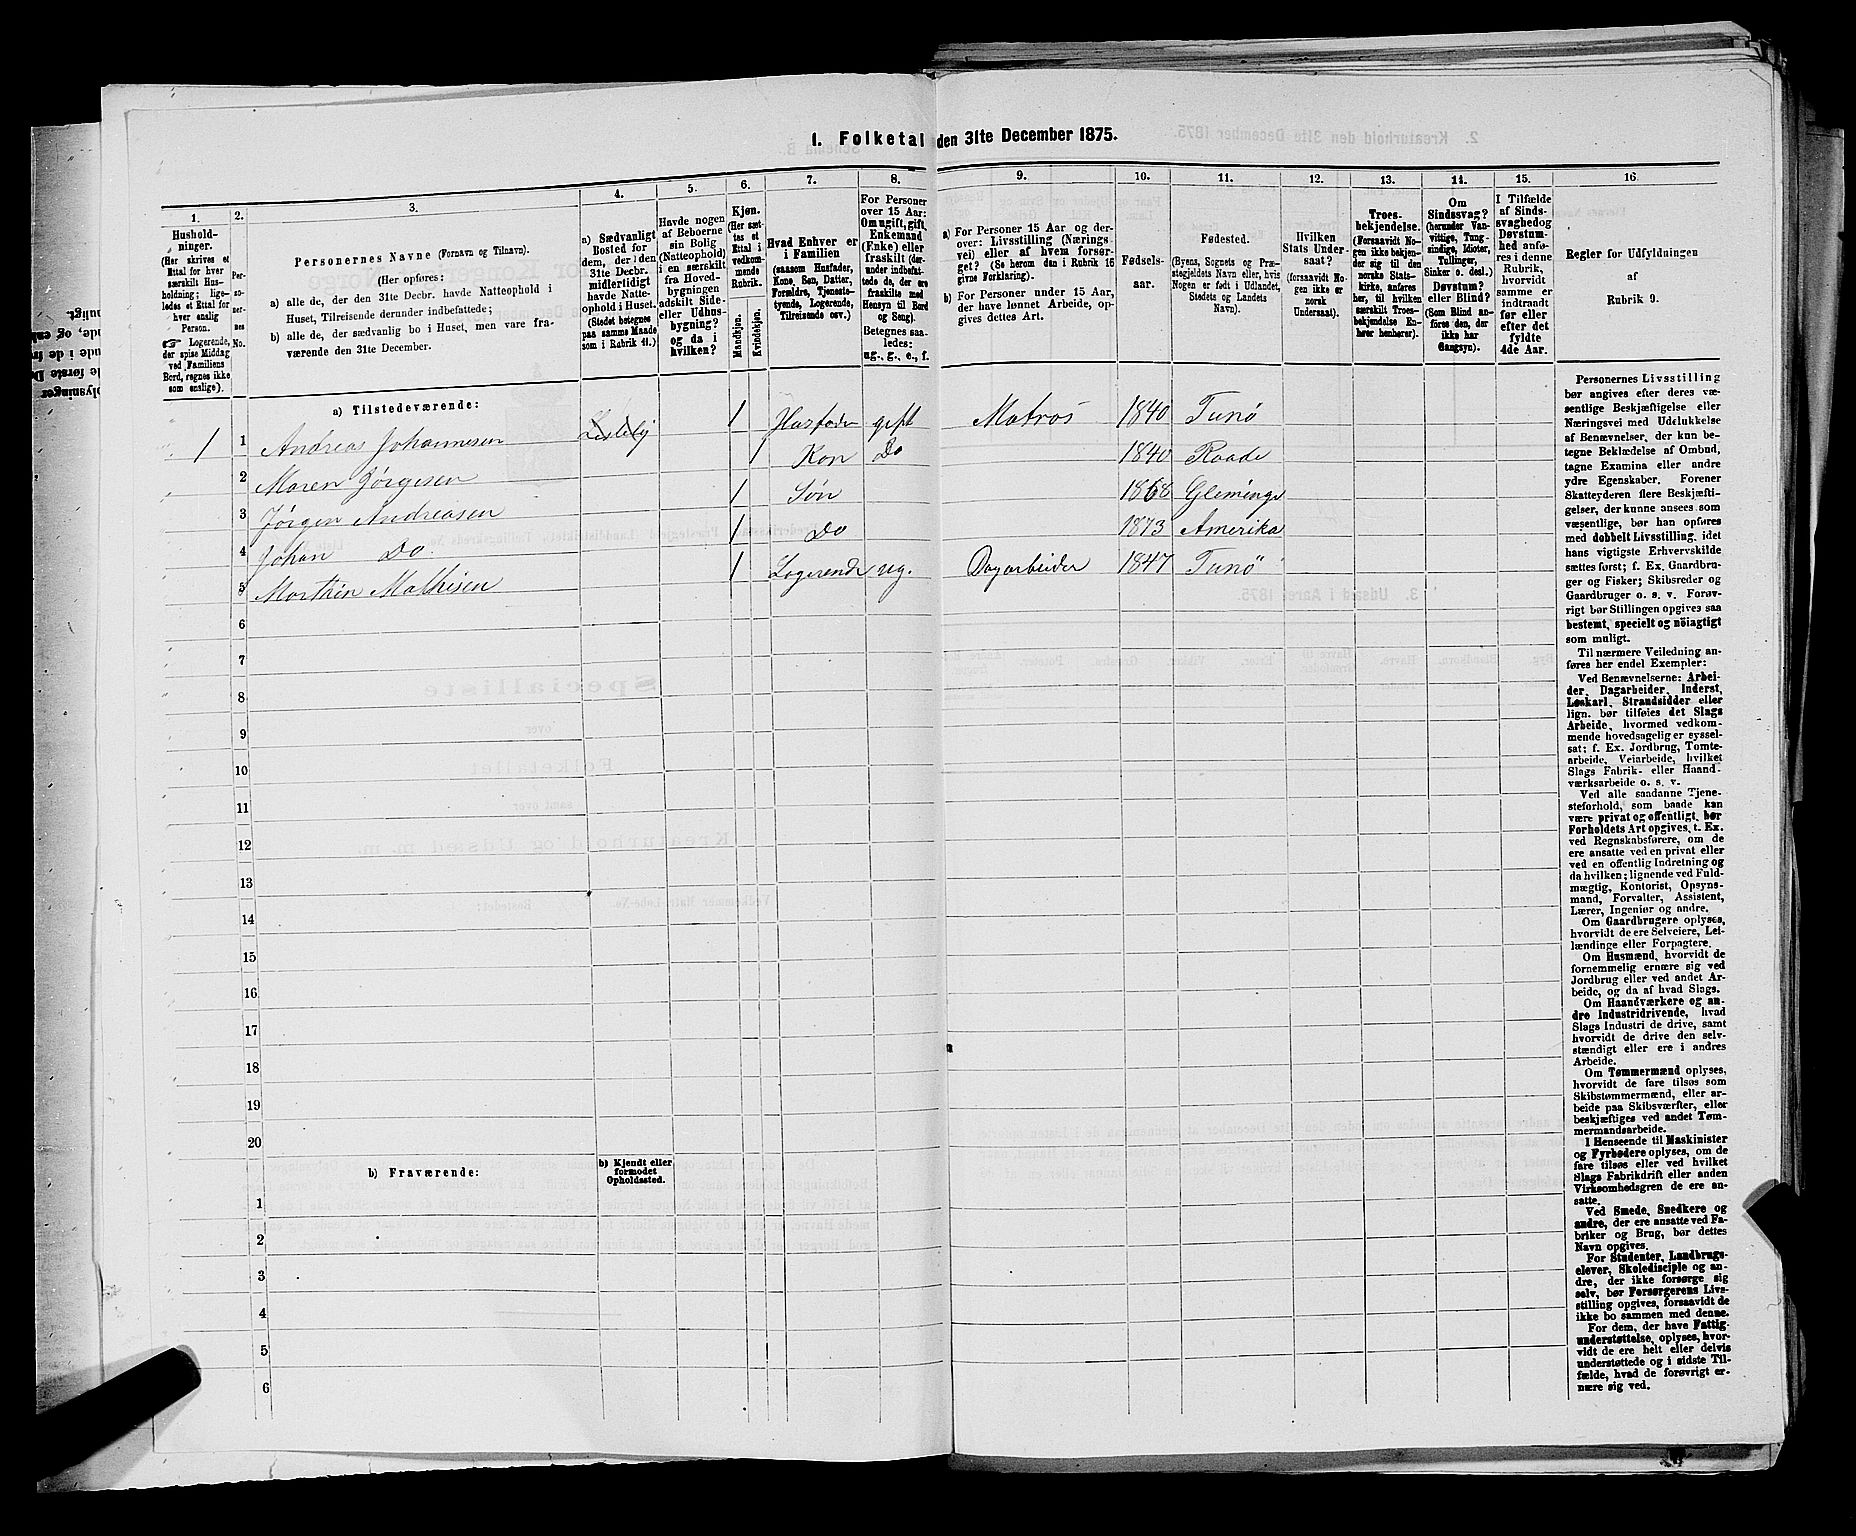 1. Folketal den 31te December 1875.
1. 2. 3. 4. 5. 6. 7. 8. 9. 10. 11. 12. 13. 14. 15. 16.
Hushold-
ninger.
(Her skrives et
Ettal for hver
særskilt Hus-
holdning; lige-
ledes et Ettal for
hver enslig
Person.
☞ Logerende,
der spise Middag
ved Familiens
Bord, regnes ikke
som enslige).
Per-
so-
ner-
nes
No.
Personernes Navne (Fornavn og Tilnavn).
(Her opføres:
a) alle de, der den 31te Decbr. havde Natteophold i
Huset, Tilreisende derunder indbefattede;
b) alle de, der sædvanlig bo i Huset, men vare fra-
værende den 31te December.
a) Sædvanligt
Bosted for
dem, der den
31te Decbr.
midlertidigt
havde Natte-
ophold i Huset.
(Stedet betegnes
paa samme Maade
som i Rubrik 11.)
Havde nogen
af Beboerne
sin Bolig
(Natteophold)
i en særskilt
fra Hoved-
bygningen
adskilt Side-
eller Udhus-
bygning?
og da i
hvilken?
Kjøn.
(Her sæt-
tes et
Ettal i
vedkom-
mende
Rubrik.
Mandkjøn.
Kvindekjøn.
Hvad Enhver er
i Familien
(saasom Husfader,
Kone, Søn, Datter,
Forældre, Tjeneste-
tyende, Logerende,
Tilreisende osv.)
For Personer
over 15 Aar:
Om ugift, gift,
Enkemand
(Enke) eller
fraskilt (der-
under indbefat-
tede de, der ere
fraskilte med
Hensyn til Bord
og Seng).
Betegnes saa-
ledes:
ug., g., e., f.
a) For Personer 15 Aar og der-
over: Livsstilling (Nærings-
vei) eller af hvem forsør-
get? (Se herom den i Rubrik 16
givne Forklaring).
b) For Personer under 15 Aar,
der have lønnet Arbeide, op-
gives dettes Art.
Fødsels-
aar.
Fødested.
(Byens, Sognets og Præ-
stegjeldets Navn eller, hvis
Nogen er født i Udlandet,
Stedets og Landets
Navn).
Hvilken
Stats Under-
saat?
(forsaavidt No-
gen ikke er
norsk
Undersaat).
Troes-
bekjendelse.
(Forsaavidt No-
gen ikke bekjen-
der sig til den
norske Stats-
kirke, anføres
her, til hvilken
særskilt Troes-
bekjendelse En-
hver henhører).
Om
Sindssvag?
(herunder Van-
vittige, Tung-
sindige, Idioter,
Tullinger,
Sinker o. desl.)
Døvstum?
eller Blind?
(Som Blind an-
føres den, der
ikke har
Gangsyn).
I Tilfælde
af Sinds-
svaghed og
Døvstum-
hed anfø-
res i denne
Rubrik,
hvorvidt
samme er
indtraadt
før eller
efter det
fyldte
4de Aar.
Regler for Udfyldningen
af
Rubrik 9.
a) Tilstedeværende:
1 1 Andreas Johannesen 1 Husfader gift Matros 1840 Tunø
2 Maren Jørgesen 1 Kon Do 1840 Raade
3 Jørgen Andreasen 1 Søn 1868 Gleminge
4 Johan Do 1 Do 1873 Amerika
5 Marthin Mathisen 1 Logerende ug. Dagarbeider 1847 Tunø
6
7
8
9
10
11
12
13
14
15
16
17
18
19
20
b) Fraværende:
b) Kjendt eller
formodet
Opholdssted.
1
2
3
4
5
6
Personernes Livsstilling
bør angives efter deres væ-
sentlige Beskjæftigelse eller
Næringsvei med Udelukkelse
af Benævnelser, der kun be-
tegne Beklædelse af Ombud,
tagne Examina eller andre
ydre Egenskaber. Forener
Skatteyderen flere Beskjæfti-
gelser, der kunne ansees som
væsentlige, bør han opføres
med dobbelt Livsstilling, idet
hans vigtigste Erhvervskilde
sættes først; f. Ex. Gaardbru-
ger og Fisker; Skibsreder og
Gaardbruger o. s. v. Forøv-
rigt bør Stillingen opgives saa
bestemt, specielt og nöiagtigt
som muligt.
Til nærmere Veiledning an-
føres her endel Exempler:
Ved Benævnelserne: Arbei-
der, Dagarbeider, Inderst,
Løskarl, Strandsidder eller
lign. bør tilføies det Slags
Arbeide, hvormed vedkom-
mende hovedsagelig er syssel-
sat; f. Ex. Jordbrug, Tomte-
arbeide, Veiarbeide, hvilket
Slags Fabrik- eller Haand-
værksarbeide o. s. v.
Ved alle saadanne Tjene-
steforhold, som baade kan
være privat og offentligt, bør
Forholdets Art opgives, t. Ex.
ved Regnskabsførere, om de
ere ansatte ved en privat eller
ved en offentlig Indretning og
da hvilken; lignende ved Fuld-
mægtig, Kontorist, Opsyns-
mand, Forvalter, Assistent,
Lærer, Ingeniør og andre.
Om Gaardbrugere oplyses,
hvorvidt de ere Selveiere, Lei-
lændinge eller Forpagtere.
Om Husmænd, hvorvidt de
fornemmelig ernære sig ved
Jordbrug eller ved andet Ar-
beide, og da af hvad Slags.
Om Haandværkere og an-
dre Industridrivende, hvad
Slags Industri de drive, samt
hvorvidt de drive den selv-
stændigt eller ere i andres
Arbeide.
Om Tømmermænd oplyses,
hvorvidt de fare tilsøs som
Skibstømmermænd, eller ar-
beide paa Skibsværfter, eller
beskjæftiges ved andet Tøm-
mermandsarbeide.
I Henseende til Maskinister
og Fyrbødere oplyses, om de
fare tilsøs eller ved hvilket
Slags Fabrikdrift eller anden
Virksomhedsgren de ere an-
satte.
Ved Smede, Snedkere og
andre, der ere ansatte ved Fa-
briker og Brug, bør dettes
Navn opgives.
For Studenter, Landbrugs-
elever, Skoledisciple og an-
dre, der ikke forsørge sig
selv, bør Forsørgerens Livs-
stilling opgives, forsaavidt de
ikke bo sammen med denne.
For dem, der have Fattig-
understøttelse, oplyses, hvor-
vidt de ere helt eller delvis
understøttede og i sidste Til-
fælde, hvad de forøvrigt er-
nære sig ved.